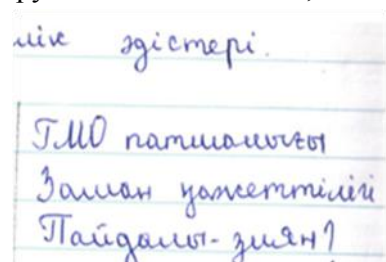 әдістері.
ГМО патшалығы
Заман қажеттілігі
Пайдалы-зиян?